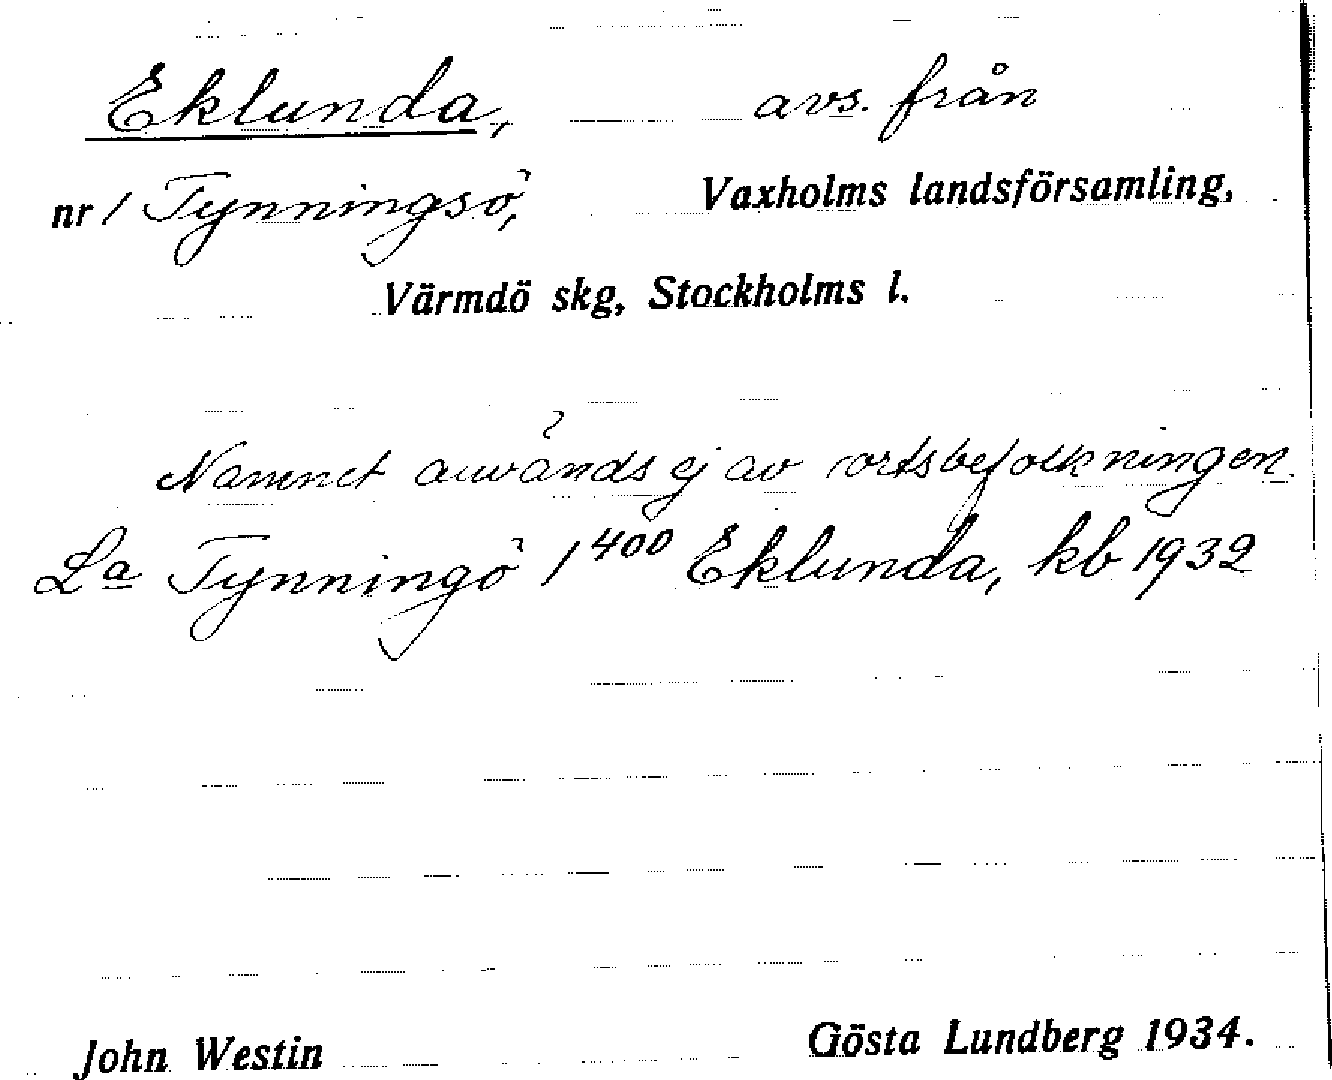 Eklunda, avs. från
nr 1 Tynningsö, Vaxholms landsförsamling,
Värmdö skg, Stockholms l.
Namnet används ej av ortsbefolkningen.
La Tynningö 1 400 Eklunda, kb 1932
John Westin Gösta Lundberg 1934.